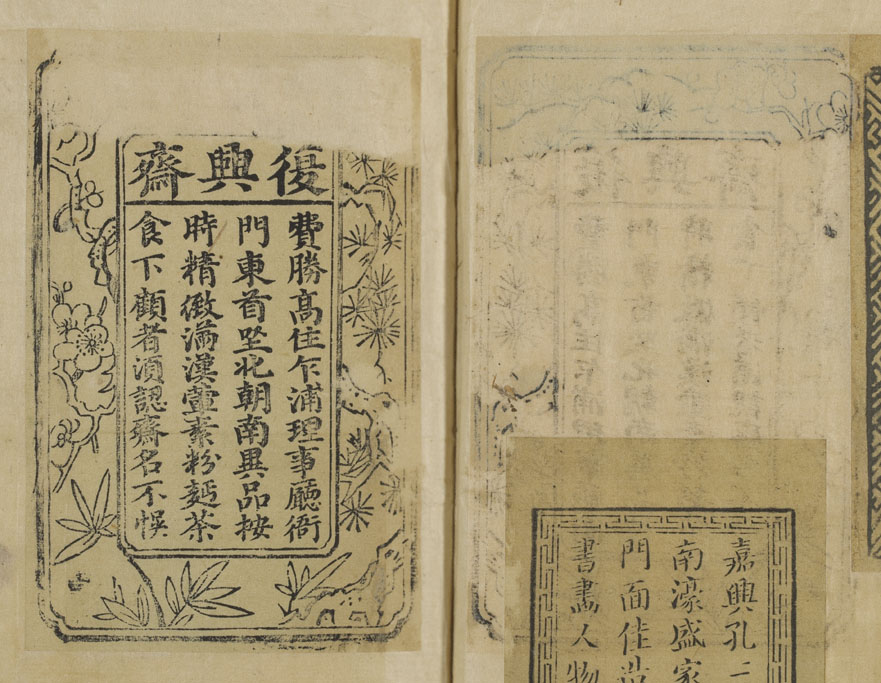 復興齋
費勝髙住乍浦理事廳衙
門東首坐北朝南異品按
時精緻滿漢葷素粉麵茶
食下顧者須認齋名不悞
嘉興孔
南濠盛家
門面佳
書畫人物